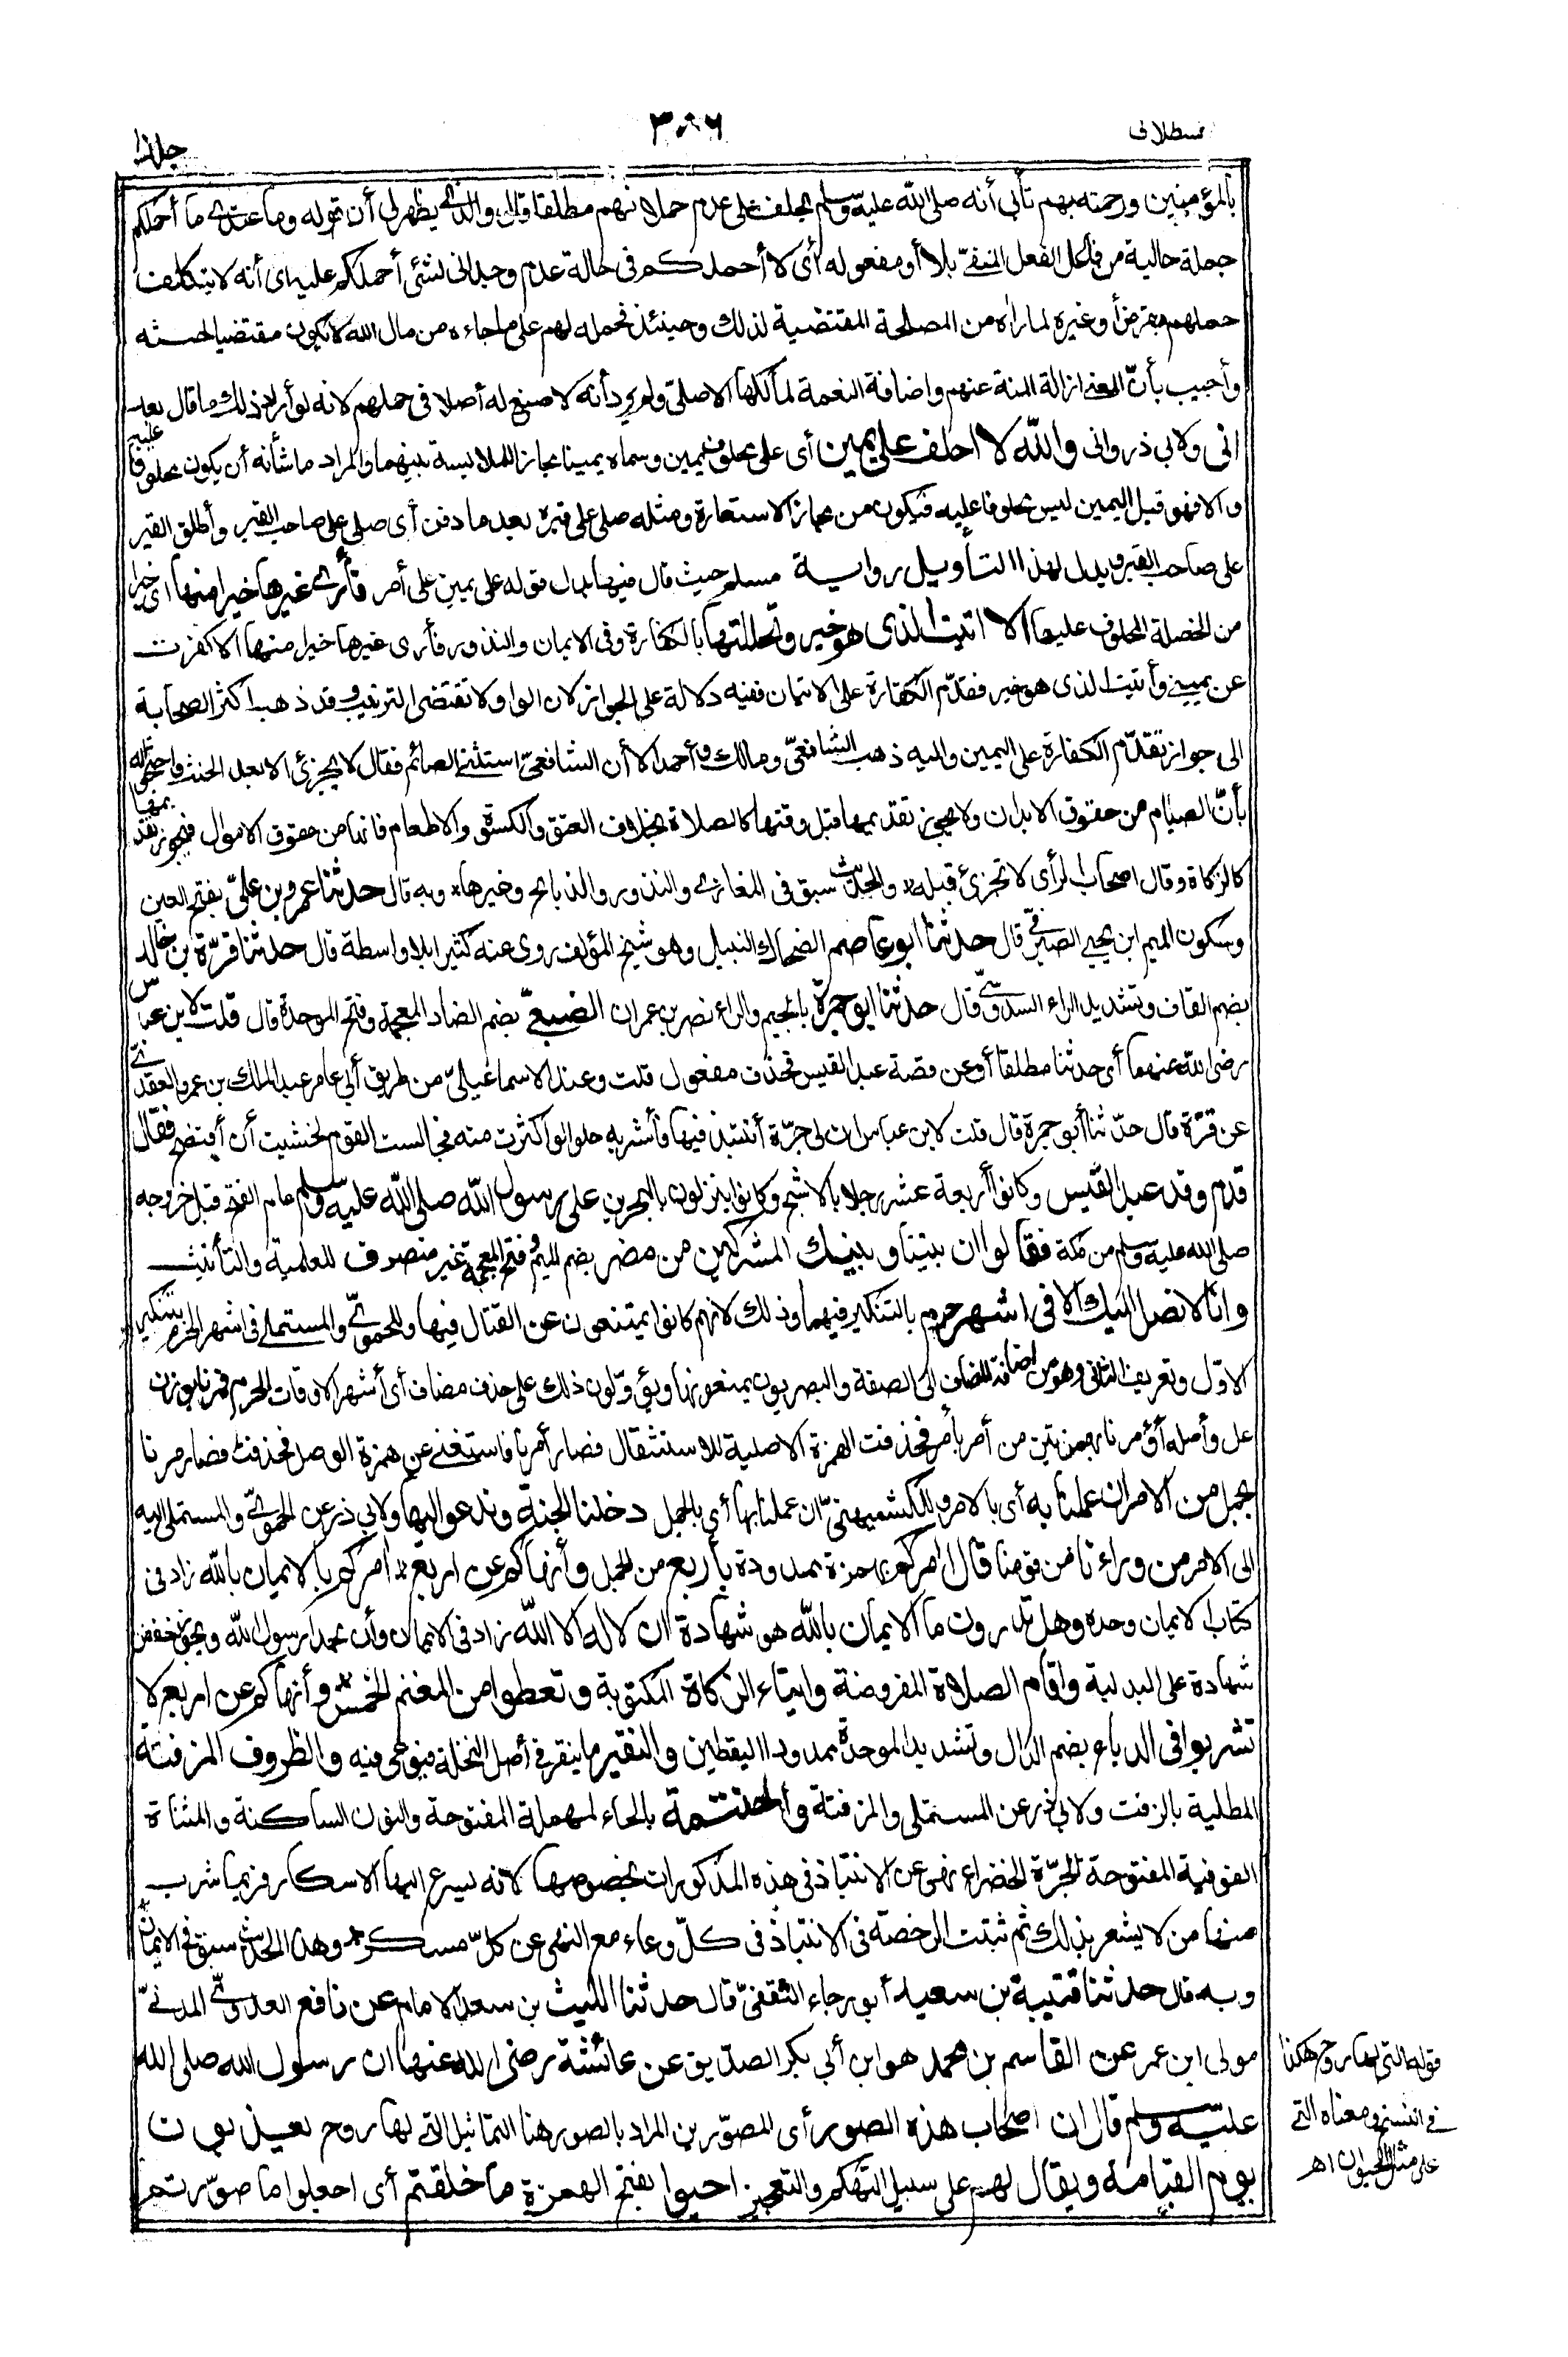 قسطلانی
٣٠٨٦
بالمؤمنين ورحمته بهم تأبى أنه صلى الله عليه وسلم يحلف على عدم حملانهم مطلقا قال والذى يظهر لى أن قوله وما عندى ما أحملكم
جملة حالية من فاعل الفعل المنفىّ بلا أو مفعوله أى لا أحملكم فى حالة عدم وجدانى لشئ أحملكم عليه اى أنه لا يتكلف
حملهم بقرض أو غيره لما رآه من المصلحة المقتضية لذلك وحينئذ فحمله لهم على ما جاءه من مال الله لا يكون مقتضيا لحنثه
وأجيب بأنّ المعنى ازالة المنة عنهم واضافة النعمة لمالكها الاصلىّ ولم يرد أنه لا صنع له أصلا فى حملهم لانه لو أراد ذلك ما قال بعد
انى ولابى ذر وانى والله لا احلف على يمين أى على محلوف يمين وسماه يمينا مجازا للملابسة بينهما والمراد ما شأنه أن يكون محلوفا عليه
والا فهو قبل اليمين ليس محلوفا عليه فيكون من مجاز الاستعارة ومثله صلى على قبره بعد ما دفن أى صلى على صاحب القبر وأطلق القبر
على صاحب القبر ويدل لهذا التأويل رواية مسلم حيث قال فيها بدل قوله على يمين على أمر فأرى غيرها خيرا منها اى خيرا
من الخصلة المحلوف عليها الا اتيت الذى هو خير وتحللتها بالكفارة وفى الايمان والنذور فأرى غيرها خيرا منها الا كفرت
عن يمينى وأتيت الذى هو خير فقدّم الكفارة على الاتيان ففيه دلالة على الجواز لان الواو لا تقتضى الترتيب وقد ذهب اكثر الصحابة
الى جواز تقدّم الكفارة على اليمين واليه ذهب الشافعىّ ومالك وأحمد الا أن الشافعىّ استثنى الصائم فقال لا يجزئ الا بعد الحنث واحتج له
بأنّ الصيام من حقوق الابدان ولا يجوز تقديمها قبل وقتها كالصلاة بخلاف العتق والكسوة والاطعام فانها من حقوق الاموال فيجوز تقديمها
كالزكاة وقال اصحاب الرأى لا تجزئ قبله * والحديث سبق فى المغازى والنذور والذبائح وغيرها * وبه قال حدثنا عمرو بن علىّ بفتح العين
وسكون الميم ابن يحيى الصيرفىّ قال حدثنا ابو عاصم الضحاك النبيل وهو شيخ المؤلف روى عنه كثيرا بلا واسطة قال حدثنا قرّة بن خالد
بضم القاف وتشديد الراء السدوسىّ قال حدثنا ابو جمرة بالجيم والراء نصر بن عمران الضبعىّ بضم الضاد المعجمة وفتح الموحدة قال قلت لابن عباس
رضى الله عنهما أى حدثنا مطلقا أو عن قصة عبد القيس فحذف مفعول قلت وعند الاسماعيلىّ من طريق أبى عامر عبد الملك بن عمرو العقدىّ
عن قرّة قال حدّثنا أبو جمرة قال قلت لابن عباس ان لى جرّة أنتبذ فيها فأشربه حلوا لو اكثرت منه فجالست القوم لخشيت أن أفتضح فقال
قدم وفد عبد القيس وكانوا أربعة عشر رجلا بالاشج وكانوا ينزلون بالبحرين على رسول الله صلى الله عليه وسلم عام الفتح قبل خروجه
صلى الله عليه وسلم من مكة فقالوا ان بيننا وبينك المشركين من مضر بضم الميم وفتح المعجمة غير منصرف للعلمية والتأنيث
وانا لا نصل اليك الا فى اشهر حرم بالتنكير فيهما وذلك لانهم كانوا يمتنعون عن القتال فيها وللحموىّ والمستملى فى اشهر الحرم بتنكير
الاوّل وتعريف الثانى وهو من اضافة المضاف الى الصفة والبصريون يمنعونها ويؤوّلون ذلك على حذف مضاف أى أشهر الاوقات الحرم فمرنا بوزن
عل وأصله أؤمرنا بهمزتين من أمر يأمر فحذفت الهمزة الاصلية للاستثقال فصار أمرنا فاستغنى عن همزة الوصل فحذفت فصار مرنا
بجمل من الامر ان عملنا به أى بالامر وللكشميهنىّ ان عملنا بها أى بالجمل دخلنا الجنة وندعو اليها ولابى ذر عن الحموىّ والمستملى اليه
الى الامر من وراءنا من قومنا قال آمركم بهمزة ممدودة بأربع من الجمل وأنهاكم عن اربع * آمركم بالايمان بالله زاد فى
كتاب الايمان وحده وهل تدرون ما الايمان بالله هو شهادة ان لا اله الا الله زاد فى الايمان وأن محمدا رسول الله ويجوز خفض
شهادة على البدلية واقام الصلاة المفروضة وايتاء الزكاة المكتوبة وتعطوا من المغنم الخمس * وأنهاكم عن اربع لا
تشربوا فى الدباء بضم الدال وتشديد الموحدة ممدودا اليقطين والنقير ما ينقر فى أصل النخلة فيوعى فيه والظروف المزفتة
المطلية بالزفت ولابى ذر عن المستملى والمزفتة والحنتمة بالحاء المهملة المفتوحة والنون الساكنة والمثناة
الفوقية المفتوحة الجرّة الخضراء نهى عن الانتباذ فى هذه المذكورات بخصوصها لانه يسرع اليها الاسكار فربما شرب
منها من لا يشعر بذلك ثم ثبتت الرخصة فى الانتباذ فى كلّ وعاء مع النهى عن كلّ مسكر * وهذا الحديث سبق فى الايمان *
وبه قال حدثنا قتيبة بن سعيد أبو رجاء الثقفىّ قال حدثنا الليث بن سعد الامام عن نافع العدوىّ المدنىّ
مولى ابن عمر عن القاسم بن محمد هو ابن أبى بكر الصدّيق عن عائشة رضى الله عنها ان رسول الله صلى الله
عليه وسلم قال ان اصحاب هذه الصور أى المصوّرين المراد بالصور هنا التماثيل التى لها روح يعذبون
يوم القيامة ويقال لهم على سبيل التهكم والتعجيز احيوا بفتح الهمزة ما خلقتم أى اجعلوا ما صوّرتم
قوله التى لها روح هكذا
فى النسخ ومعناه التى
على مثال الحيوان اهـ